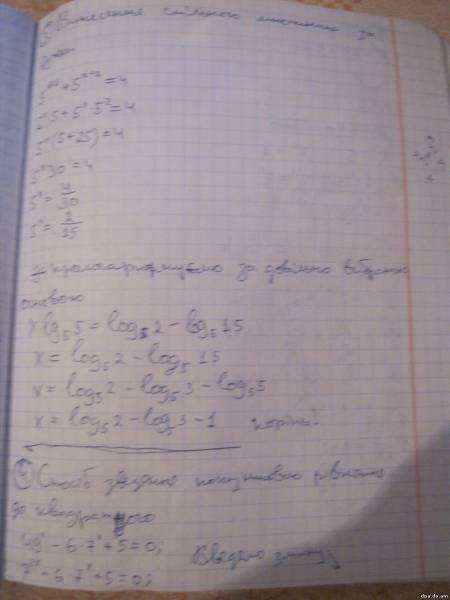 3) Винесення спільного множника за
5ˣ⁺¹ + 5ˣ⁺² = 4
5ˣ·5 + 5ˣ·5² = 4
5ˣ(5 + 25) = 4
5ˣ 30 = 4
5ˣ = 4/30
5ˣ = 2/15
Прологарифмуємо за довільно вибраною
основою
x log₅ 5 = log₅ 2 − log₅ 15
x = log₅ 2 − log₅ 15
x = log₅ 2 − log₅ 3 − log₅ 5
x = log₅ 2 − log₅ 3 − 1 корінь!
4) Спосіб зведення показникового рівняння
до квадратного
49ˣ − 6·7ˣ + 5 = 0; Введемо заміну
7²ˣ − 6·7ˣ + 5 = 0;
dpa.do.am